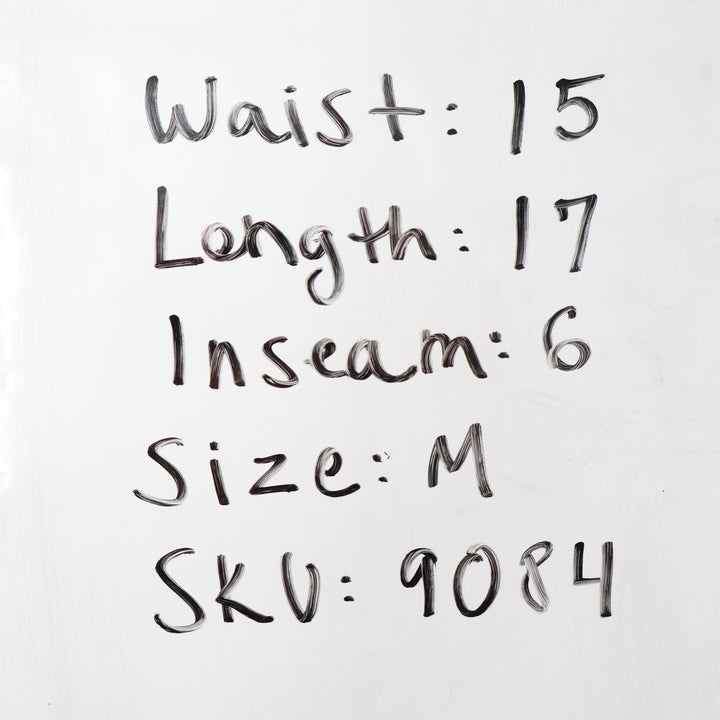 Waist: 15
Length: 17
Inseam: 6
Size: M
SKU: 9084